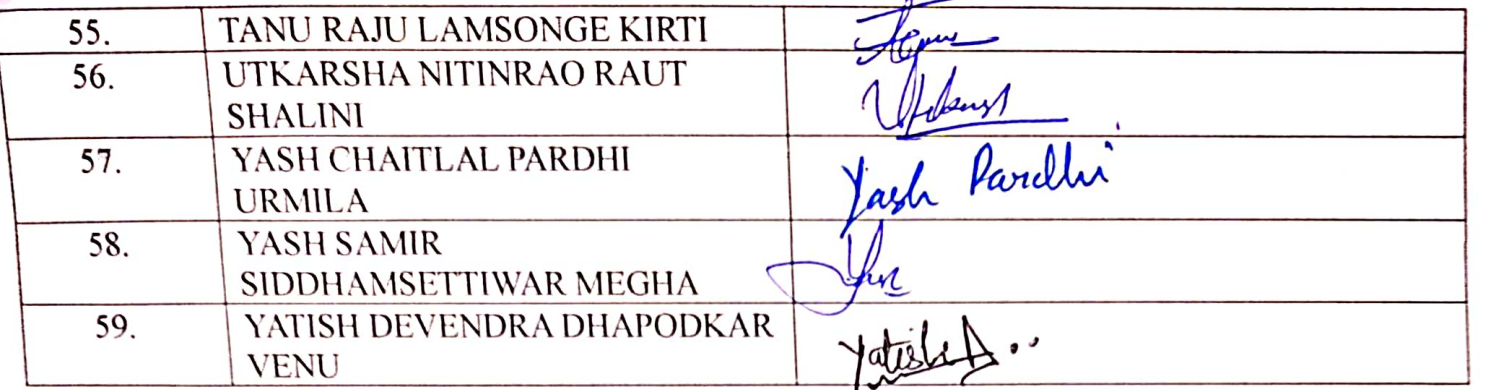 55. TANU RAJU LAMSONGE KIRTI
56. UTKARSHA NITINRAO RAUT
SHALINI
57. YASH CHAITLAL PARDHI
URMILA
Yash Pardhi
58. YASH SAMIR
SIDDHAMSETTIWAR MEGHA
59. YATISH DEVENDRA DHAPODKAR
VENU
Yatish D..